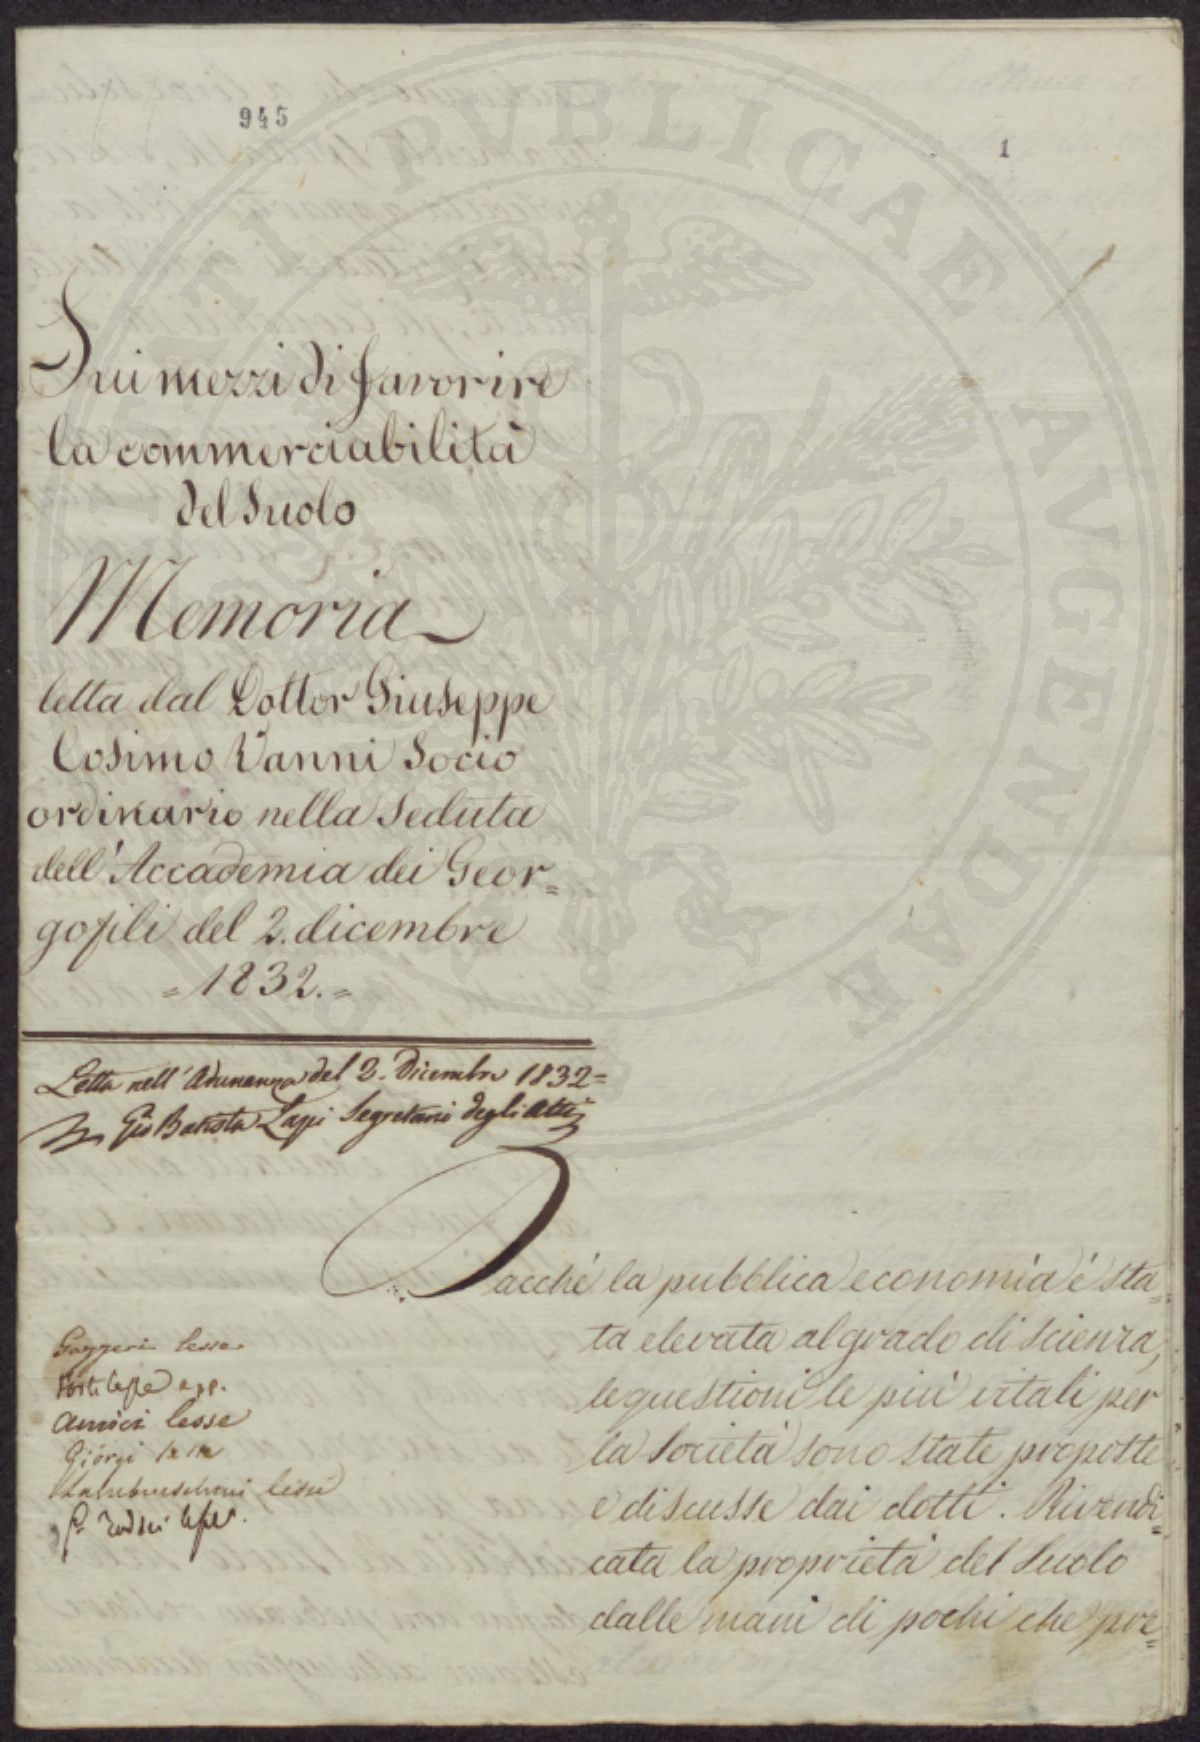 945
1
Sui mezzi di favorire
la commerciabilità
del Suolo
Memoria
letta dal Dottor Giuseppe
Cosimo Vanni Socio
ordinario nella Seduta
dell'Accademia dei Geor=
gofili del 2. dicembre
= 1832. =
Letta nell'Adunanza del 2. Dicembre 1832=
Gio Batista Lapi Segretario degli Atti
Dacchè la pubblica economia è sta=
ta elevata al grado di scienza,
le questioni le più vitali per
la Società sono state proposte
e discusse dai dotti. Rivendi=
cata la proprietà del Suolo
dalle mani di pochi che pre=
Gazzeri lesse
lesse app.
Amici lesse
Giorgi lesse
Lambruschini lesse
PUBLICAE AUGENDAE